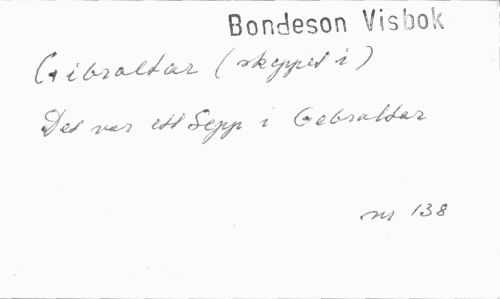 Bondeson Visbok
Gibraltar (skeppet i)
Det var ett Sepp i Gebraltar
nr 138